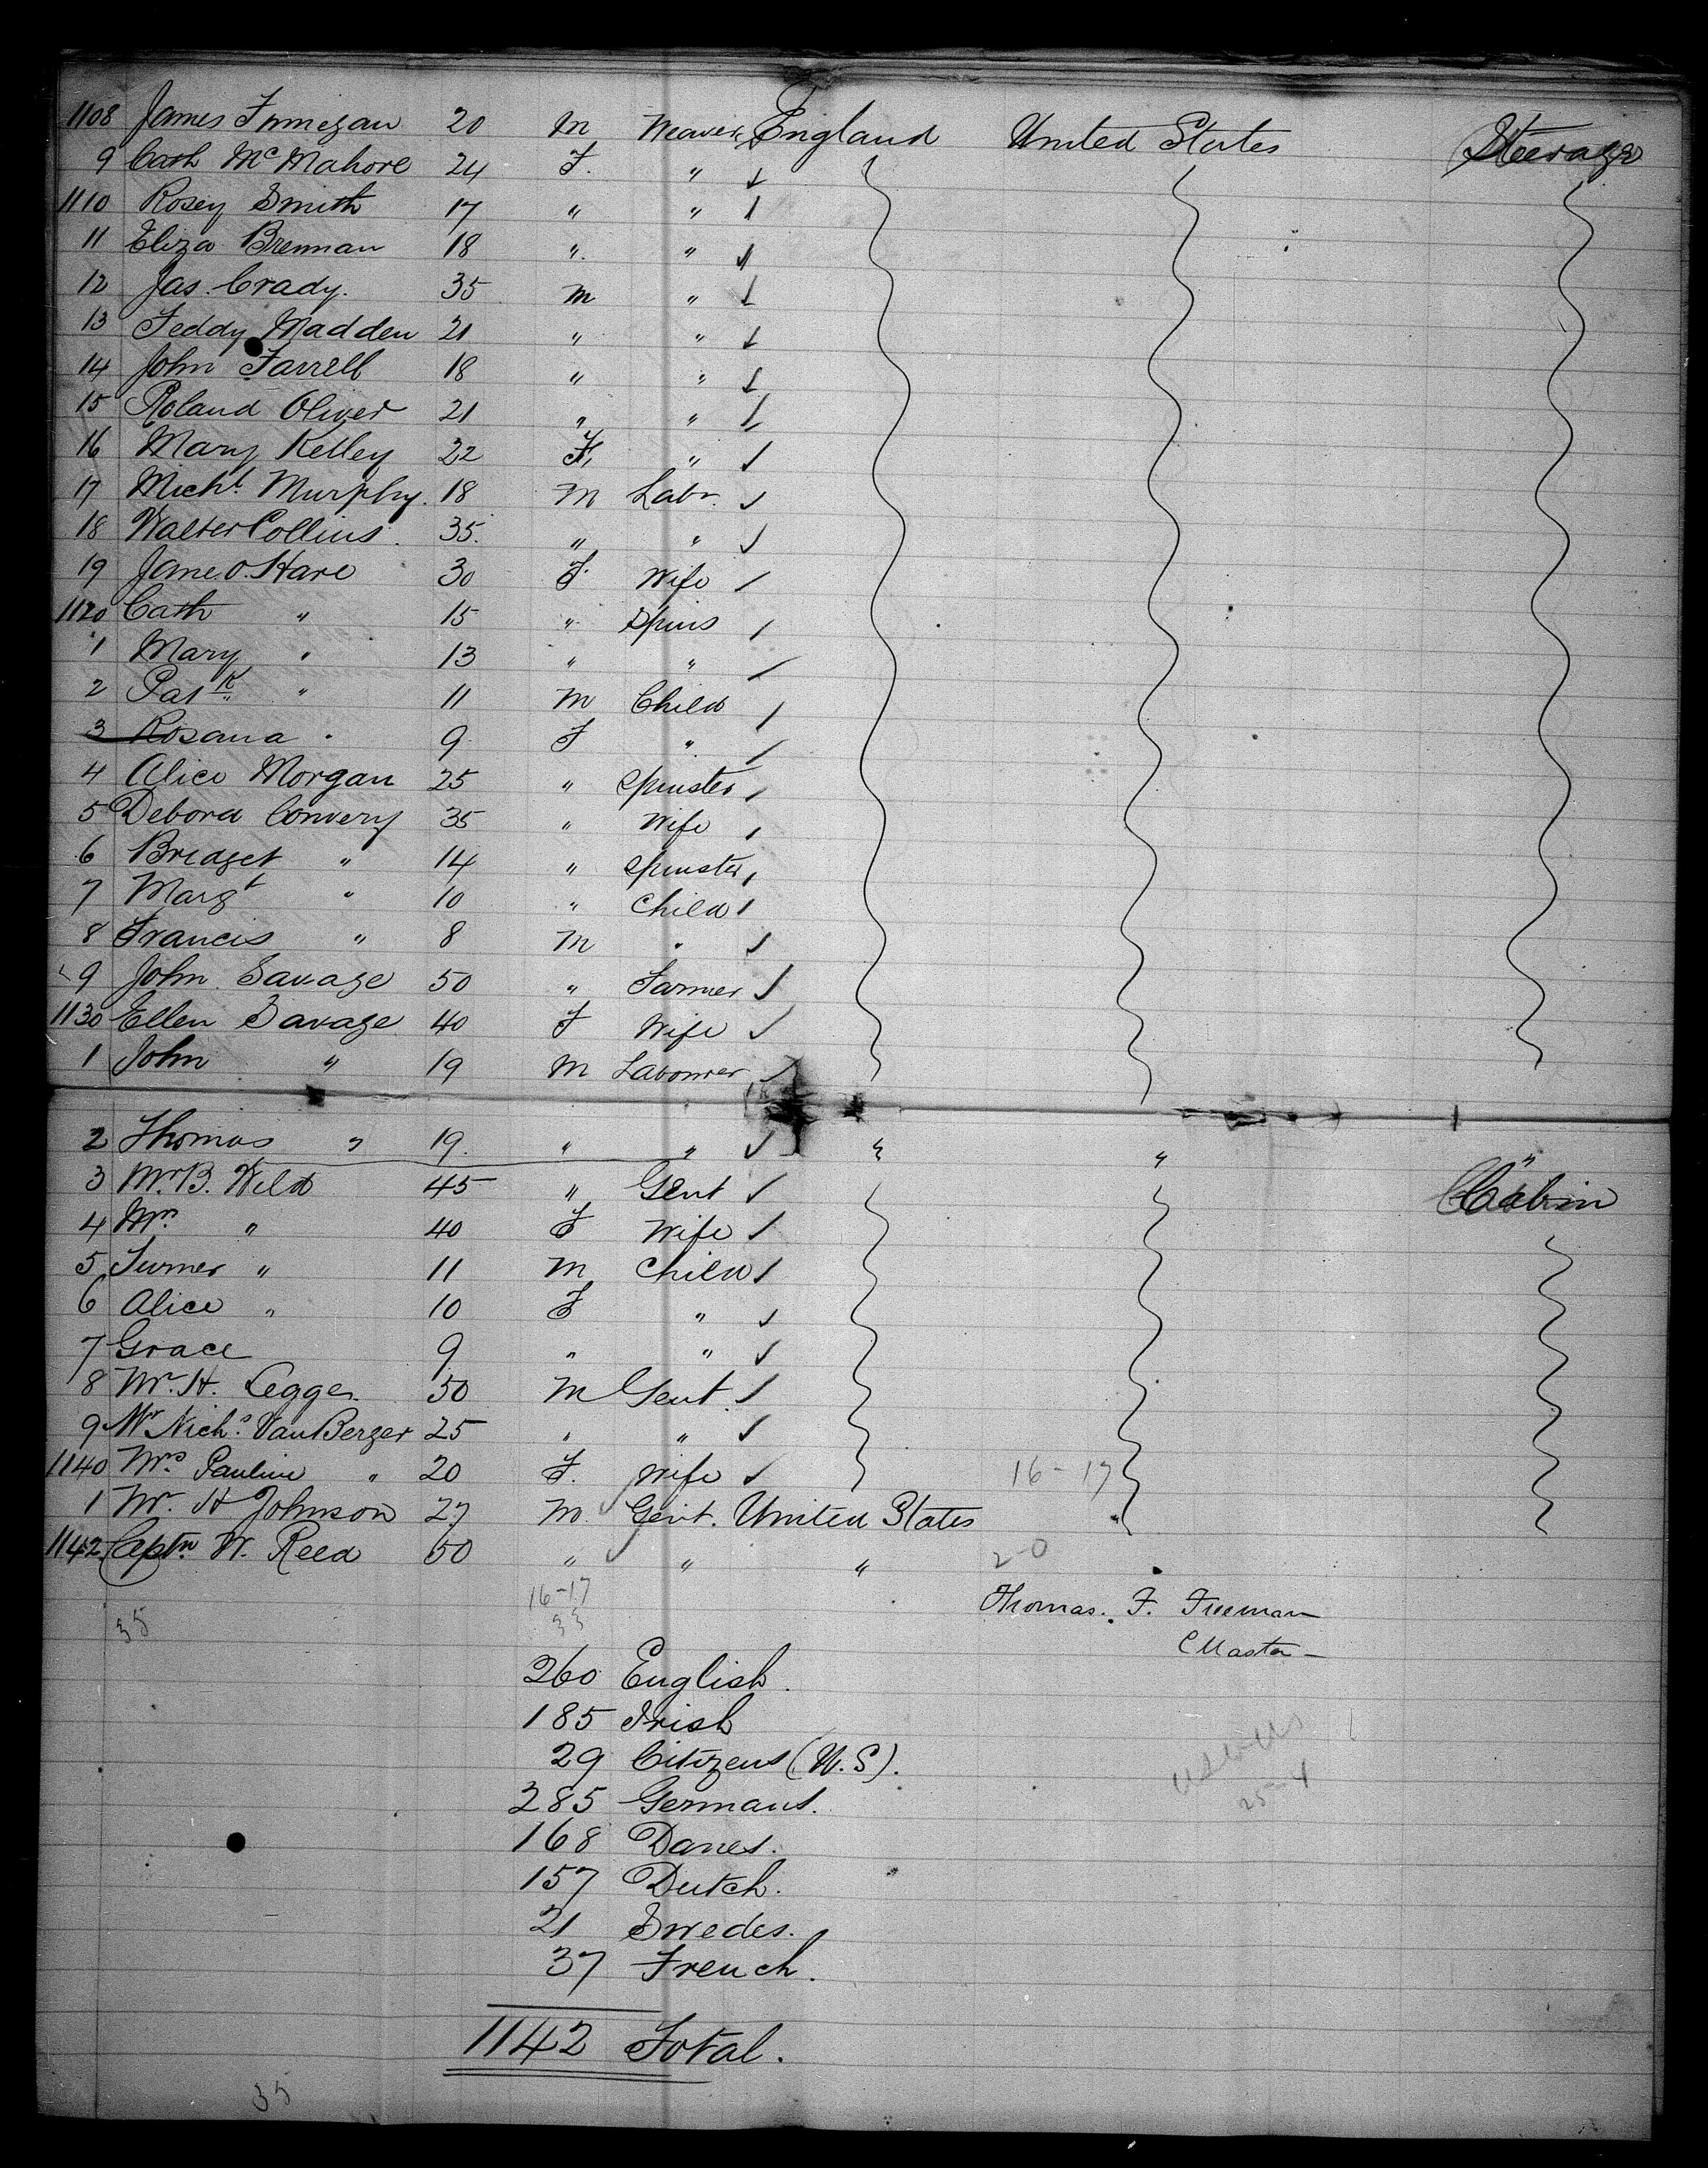 1108 James Finnegan 20 M Weaver England United States Steerage
9 Cath McMahore 24 F. " 
1110 Rosey Smith 17 " "
11 Eliza Brennan 18 " "
12 Jas. Crady. 35 M "
13 Teddy Madden 21 " "
14 John Farrell 18 " "
15 Roland Oliver 21 " "
16 Mary Kelley 22 F, "
17 Michl. Murphy. 18 M Labr.
18 Walter Collins. 35. " "
19 Jane O.Hare 30 F. Wife
1120 Cath " 15 " Spins
1 Mary " 13 " "
2 Patk " 11 M Child
3 Rosana " 9 F "
4 Alice Morgan 25 " Spinster
5 Debora Convery 35 " Wife
6 Bridget " 14 " Spinster
7 Margt " 10 " Child
8 Francis " 8 M "
9 John Savage 50 " Farmer
1130 Ellen Savage 40 F Wife
1 John " 19 M Labourer
2 Thomas " 19. " " " " "
3 Mr. B. Wild 45 " Gent Cabin
4 Mrs " 40 F Wife
5 Turner " 11 M Child
6 Alice " 10 F "
7 Grace 9 " "
8 Mr. H. Legge. 50 M Gent.
9 Mr Nichs. VanBerger 25 " "
1140 Mrs Pauline " 20 F. Wife 16-17
1 Mr. H Johnson 27 M. Gent. United States "
1142 Captn. W. Reed 50 " " " 2-0
16-17
33
35
Thomas. F. Freeman
Master
260 English.
185 Irish
29 Citizens (U.S).
285 Germans.
168 Danes.
157 Dutch.
21 Swedes.
37 French.
25-4
1142 Total.
35